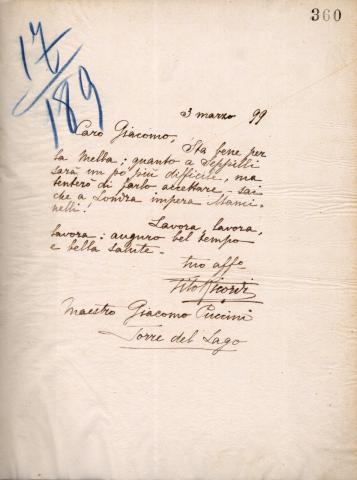 360
17/189
3 marzo 99
Caro Giacomo,
Sta bene per
la Melba; quanto a Seppilli
sarà un po' più difficile, ma
tenterò di farlo accettare - sai
che a Londra impera Manci-
nelli!
Lavora, lavora,
lavora: auguro bel tempo
e bella salute -
tuo affo
Tito Ricordi
Maestro Giacomo Puccini
Torre del Lago